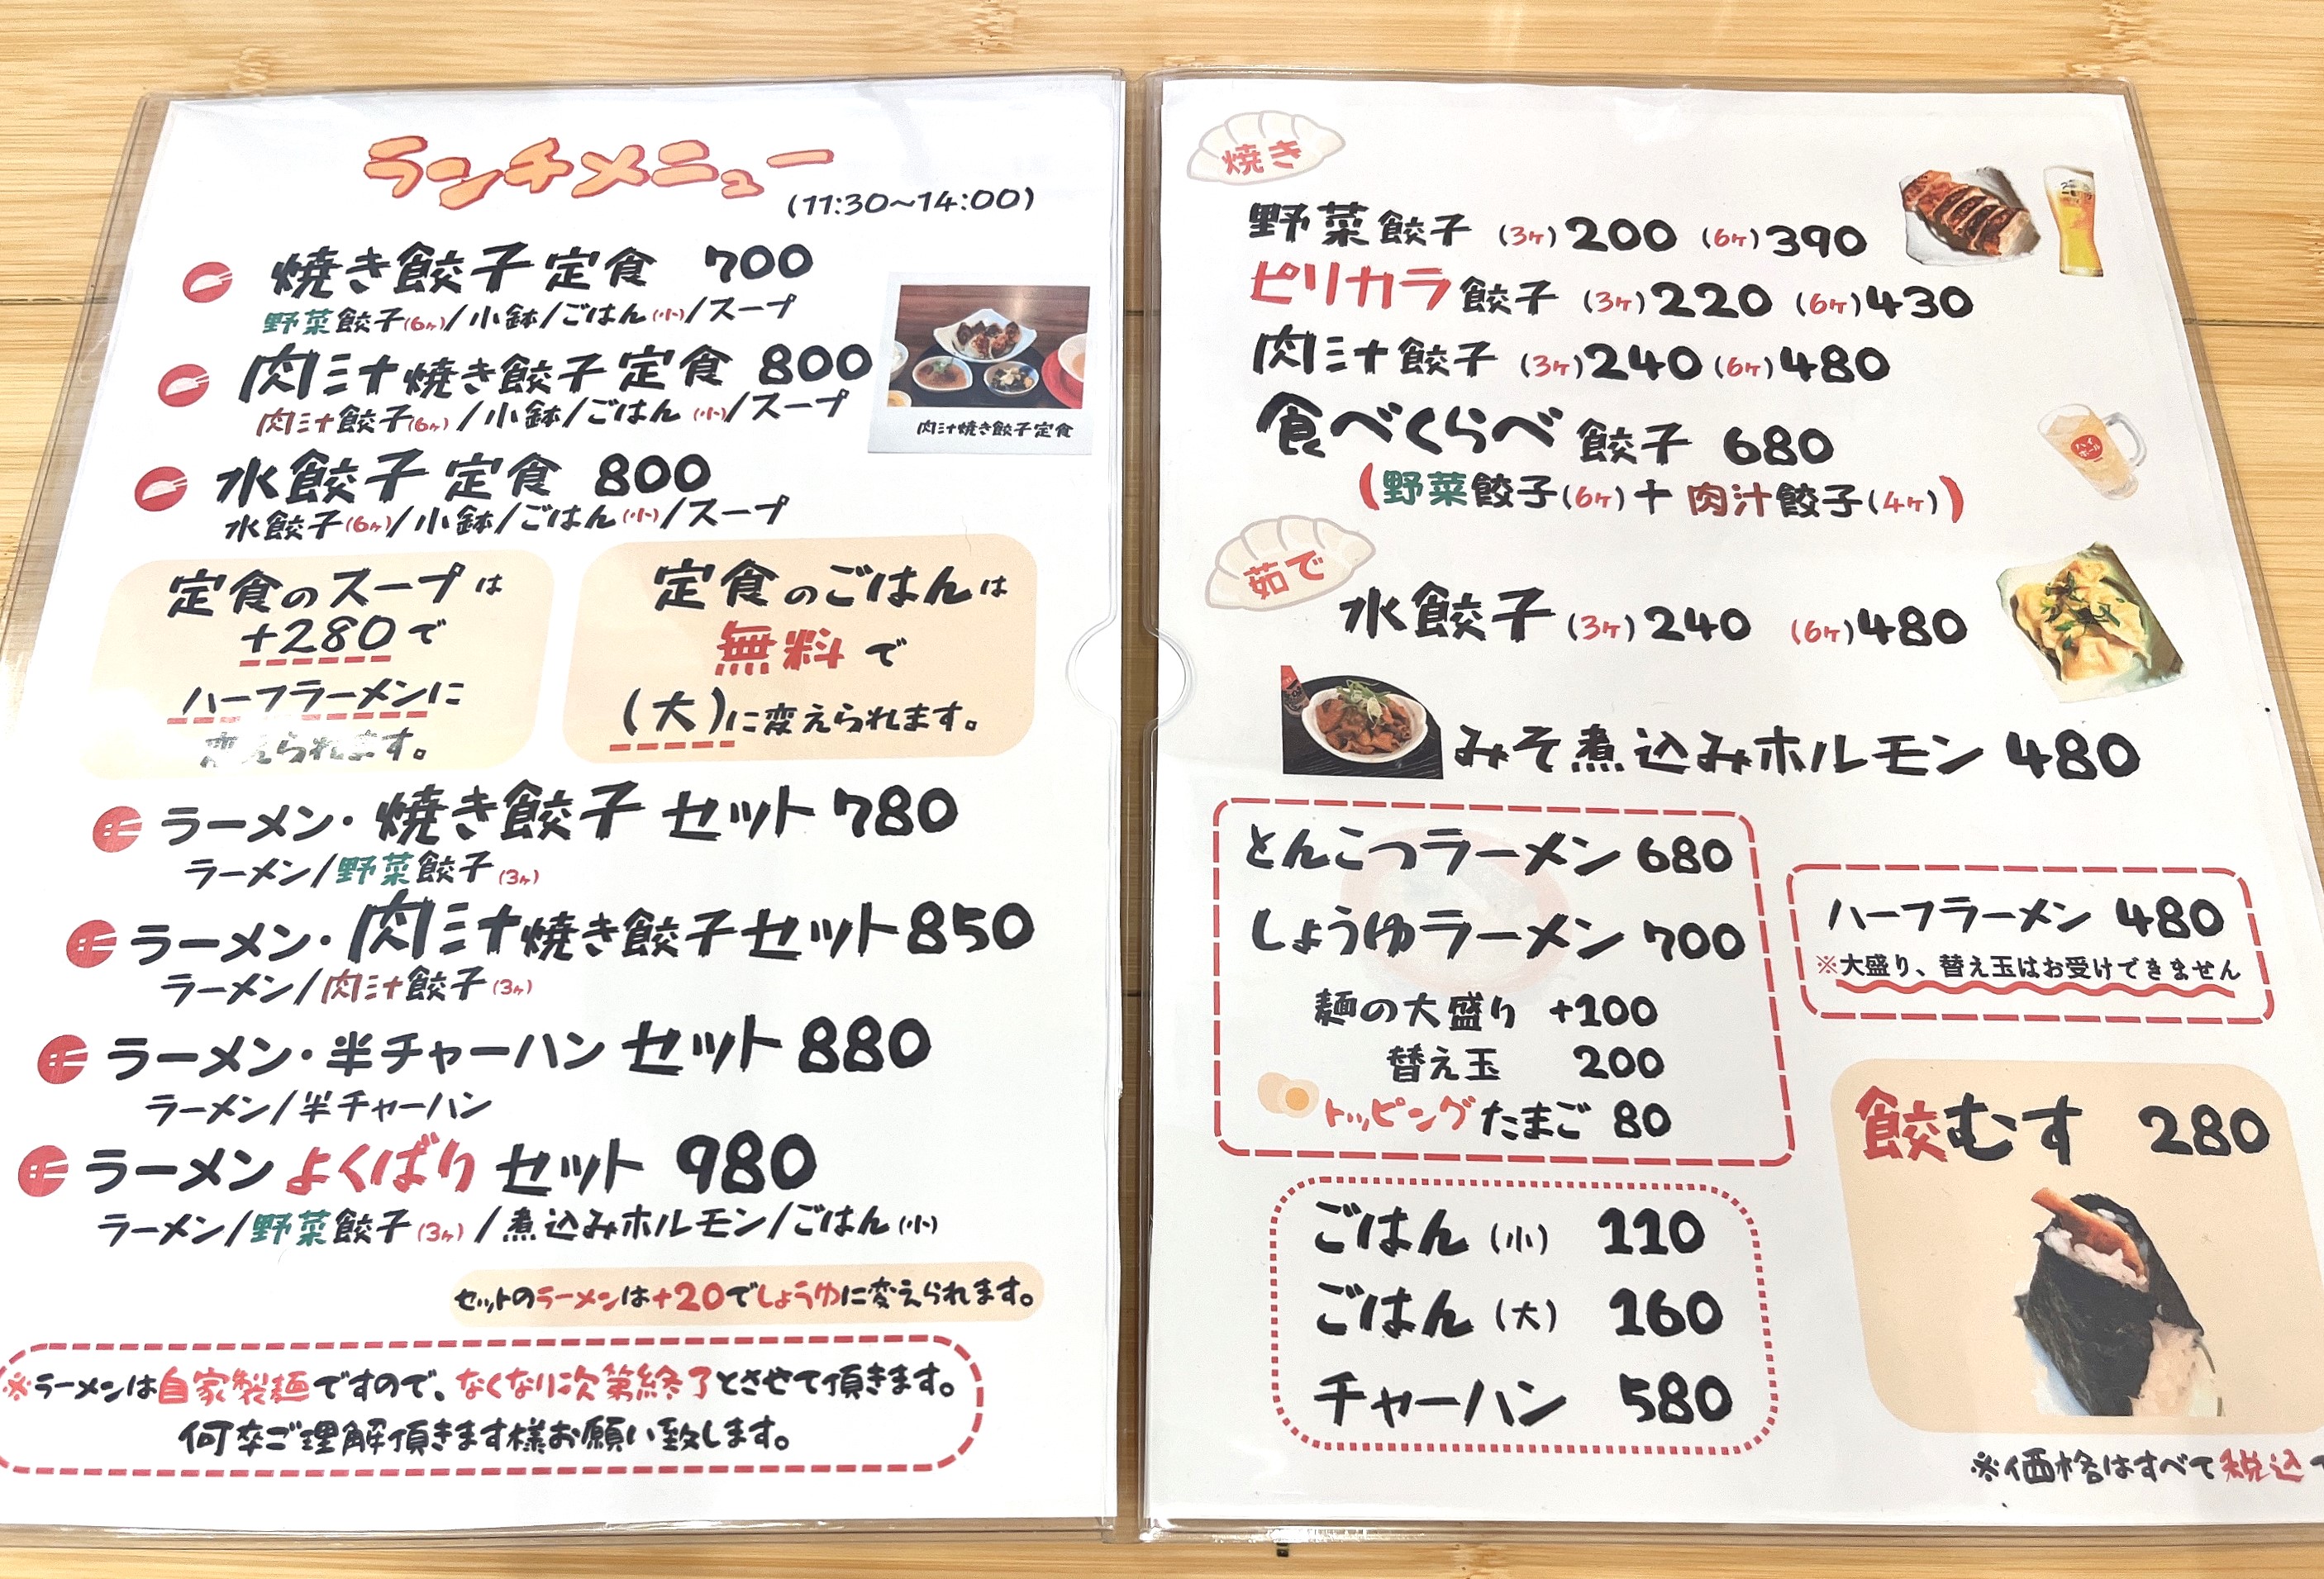 ランチメニュー
(11:30~14:00)
焼き餃子定食 700
野菜餃子(6ヶ)/小鉢/ごはん(小)/スープ
肉汁焼き餃子定食 800
肉汁餃子(6ヶ)/小鉢/ごはん(小)/スープ
肉汁焼き餃子定食
水餃子定食 800
水餃子(6ヶ)/小鉢/ごはん(小)/スープ
定食のスープは
+280で
ハーフラーメンに
変えられます。
定食のごはんは
無料で
(大)に変えられます。
ラーメン・焼き餃子セット 780
ラーメン/野菜餃子(3ヶ)
ラーメン・肉汁焼き餃子セット 850
ラーメン/肉汁餃子(3ヶ)
ラーメン・半チャーハンセット 880
ラーメン/半チャーハン
ラーメンよくばりセット 980
ラーメン/野菜餃子(3ヶ)/煮込みホルモン/ごはん(小)
セットのラーメンは+20でしょうゆに変えられます。
※ラーメンは自家製麺ですので、なくなり次第終了とさせて頂きます。
何卒ご理解頂きます様お願い致します。
焼き
野菜餃子 (3ヶ)200 (6ヶ)390
ピリカラ餃子 (3ヶ)220 (6ヶ)430
肉汁餃子 (3ヶ)240 (6ヶ)480
食べくらべ餃子 680
(野菜餃子(6ヶ)+肉汁餃子(4ヶ))
ハイボール
茹で
水餃子 (3ヶ)240 (6ヶ)480
みそ煮込みホルモン 480
とんこつラーメン 680
しょうゆラーメン 700
麺の大盛り +100
替え玉 200
トッピングたまご 80
ハーフラーメン 480
※大盛り、替え玉はお受けできません
餃むす 280
ごはん(小) 110
ごはん(大) 160
チャーハン 580
※価格はすべて税込